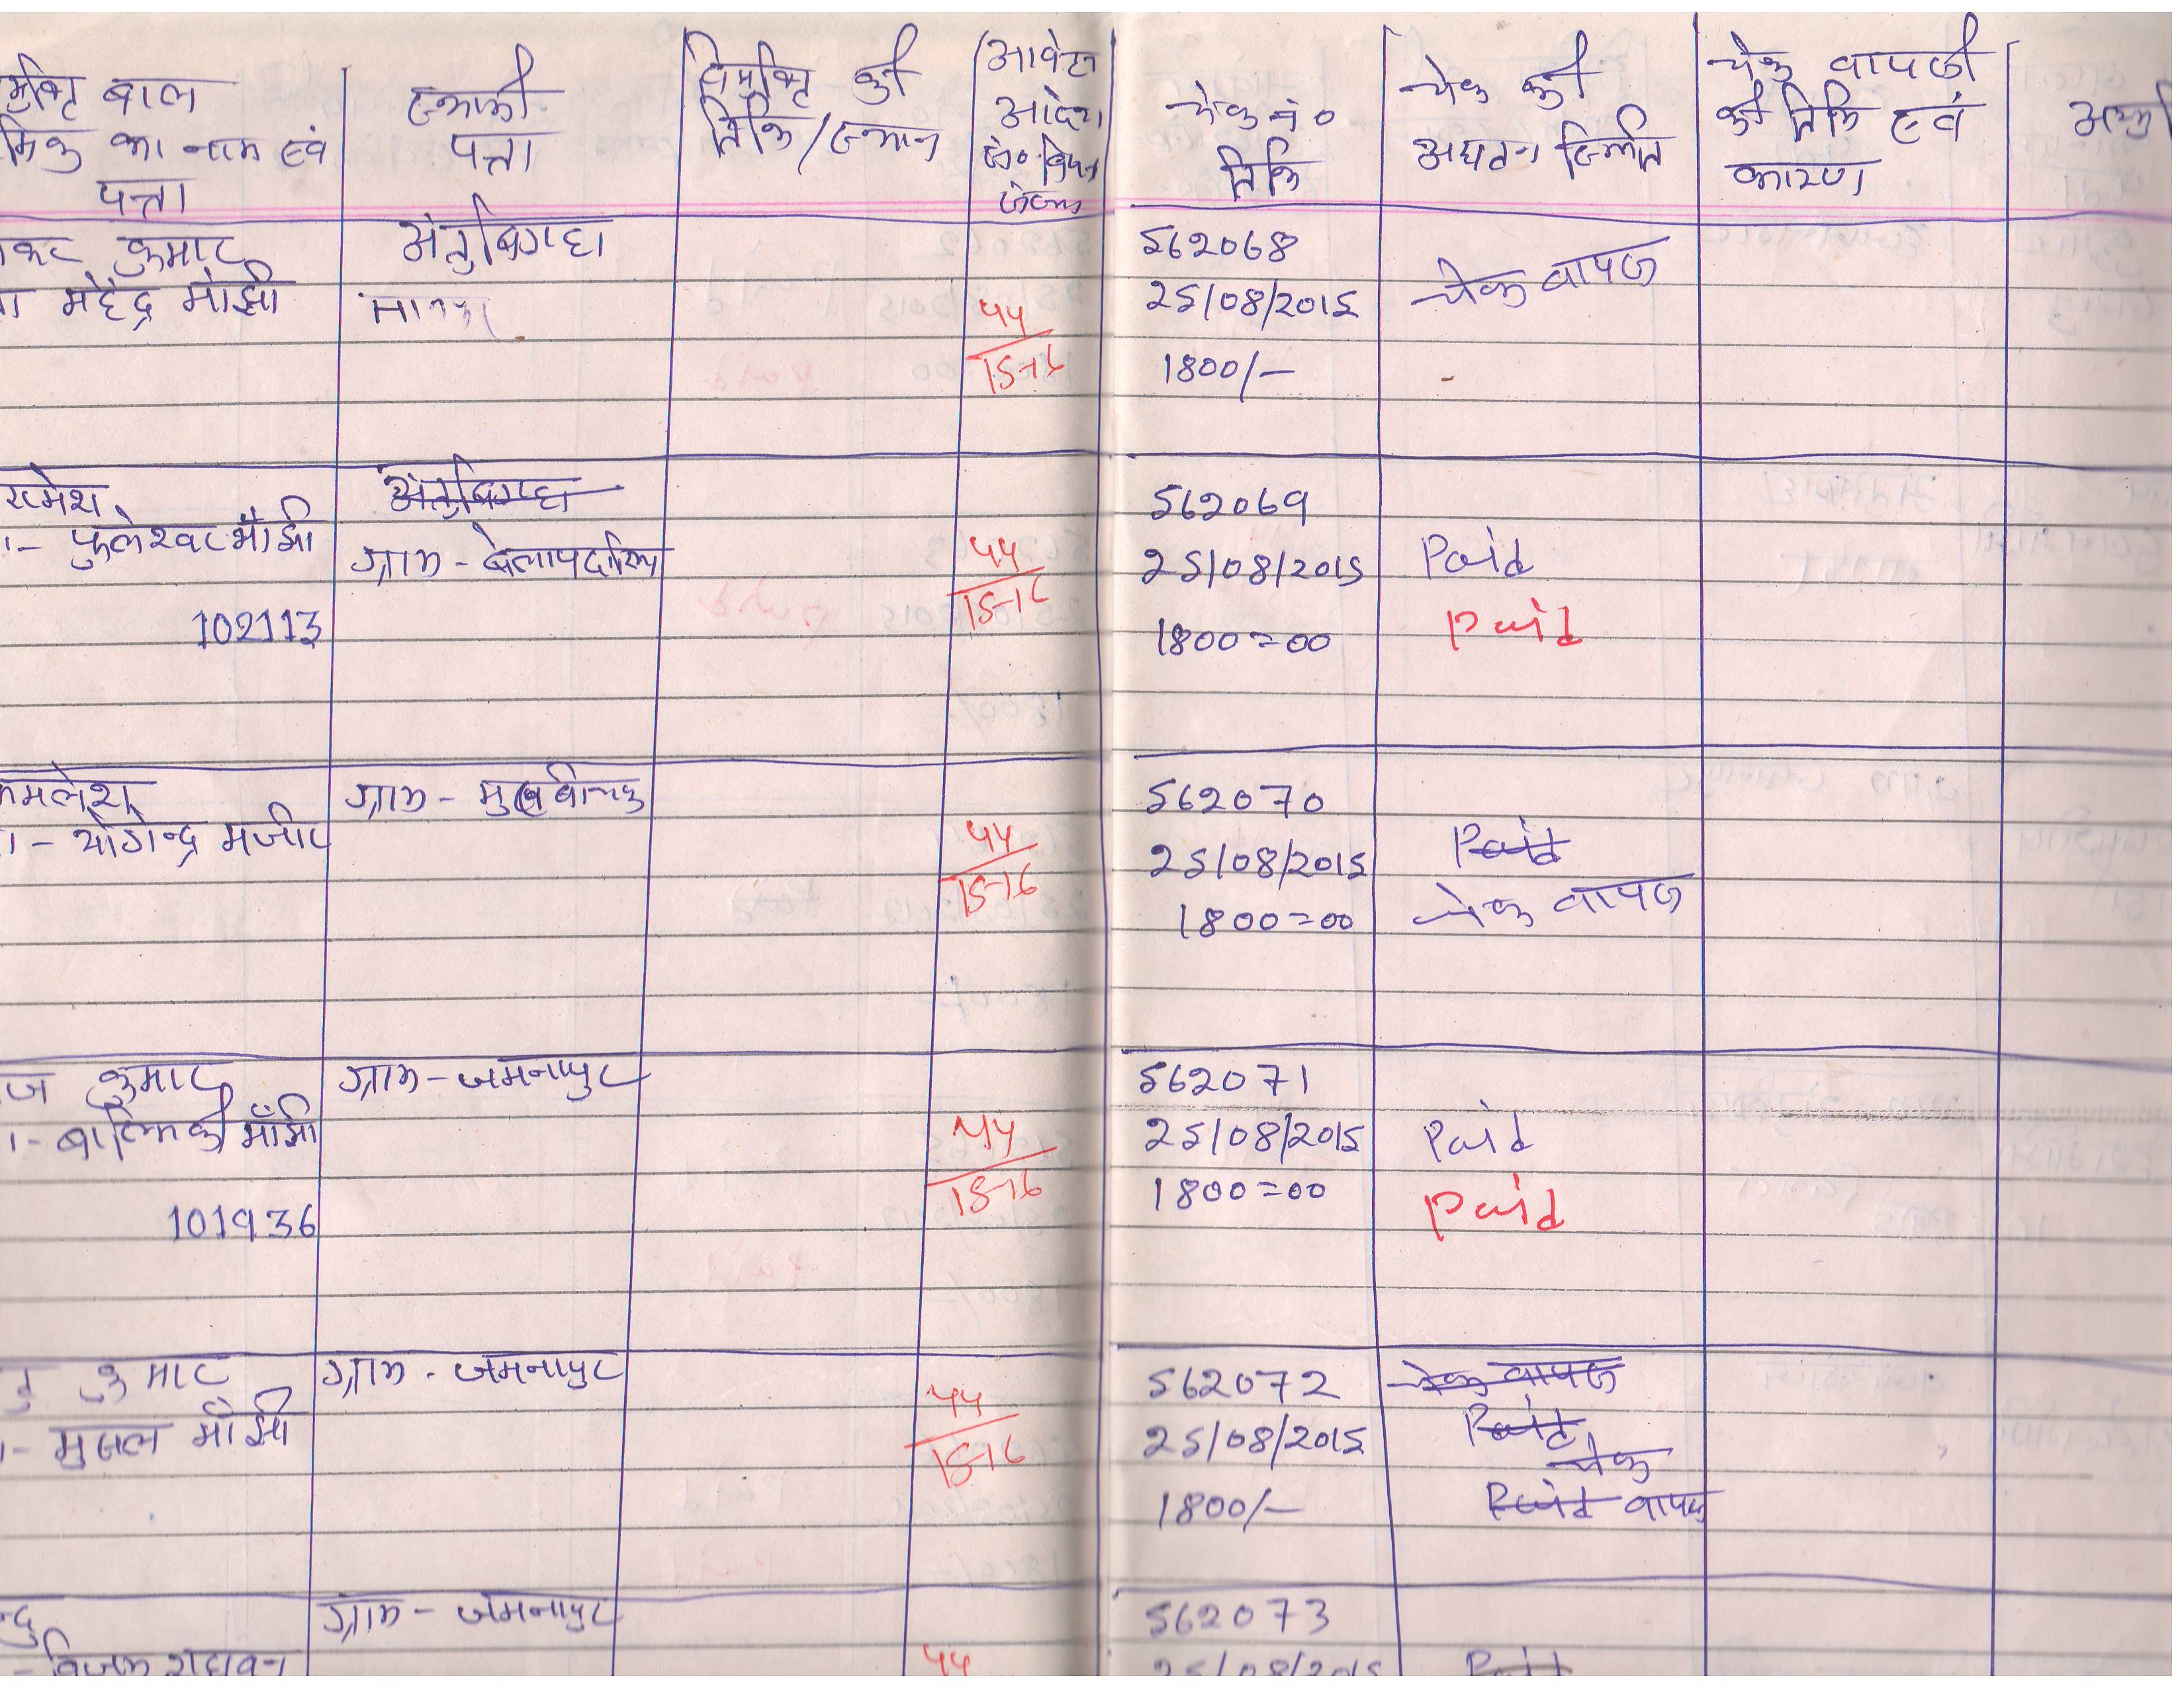 बाल
का नाम एवं
पत्ता
स्थायी
पत्ता
विमुक्ति की
तिथि/स्थान
आदेश
चेक नं०
तिथि
चेक की
अद्यतन स्थिति
चेक वापसी
की तिथि एवं
कारण
कुमार
महेंद्र माँझी
अंतुबिगहा
44
15-16
562068
25/08/2015
1800/-
चेक वापस
रमेश
फुलेश्वर माँझी
102113
अंतुबिगहा
ग्राम - बेलापदरिया
44
15-16
562069
25/08/2015
1800=00
Paid
Paid
कमलेश
योगेन्द्र मजीर
ग्राम -
44
15-16
562070
25/08/2015
1800=00
Paid
चेक वापस
कुमार
बाल्मिकी माँझी
101936
ग्राम - जमनापुर
44
15-16
562071
25/08/2015
1800=00
Paid
Paid
कुमार
माँझी
ग्राम - जमनापुर
44
15-16
562072
25/08/2015
1800/-
चेक वापस
Paid
चेक
Paid वापस
ग्राम - जमनापुर
44
562073
25/08/2015
Paid